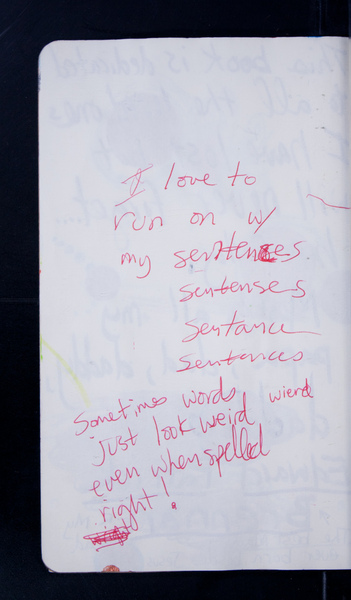 I love to
run on w/
my sentences.
sentenses
sentance
sentances
Sometimes words
just look weird wierd
even when spelled
right!